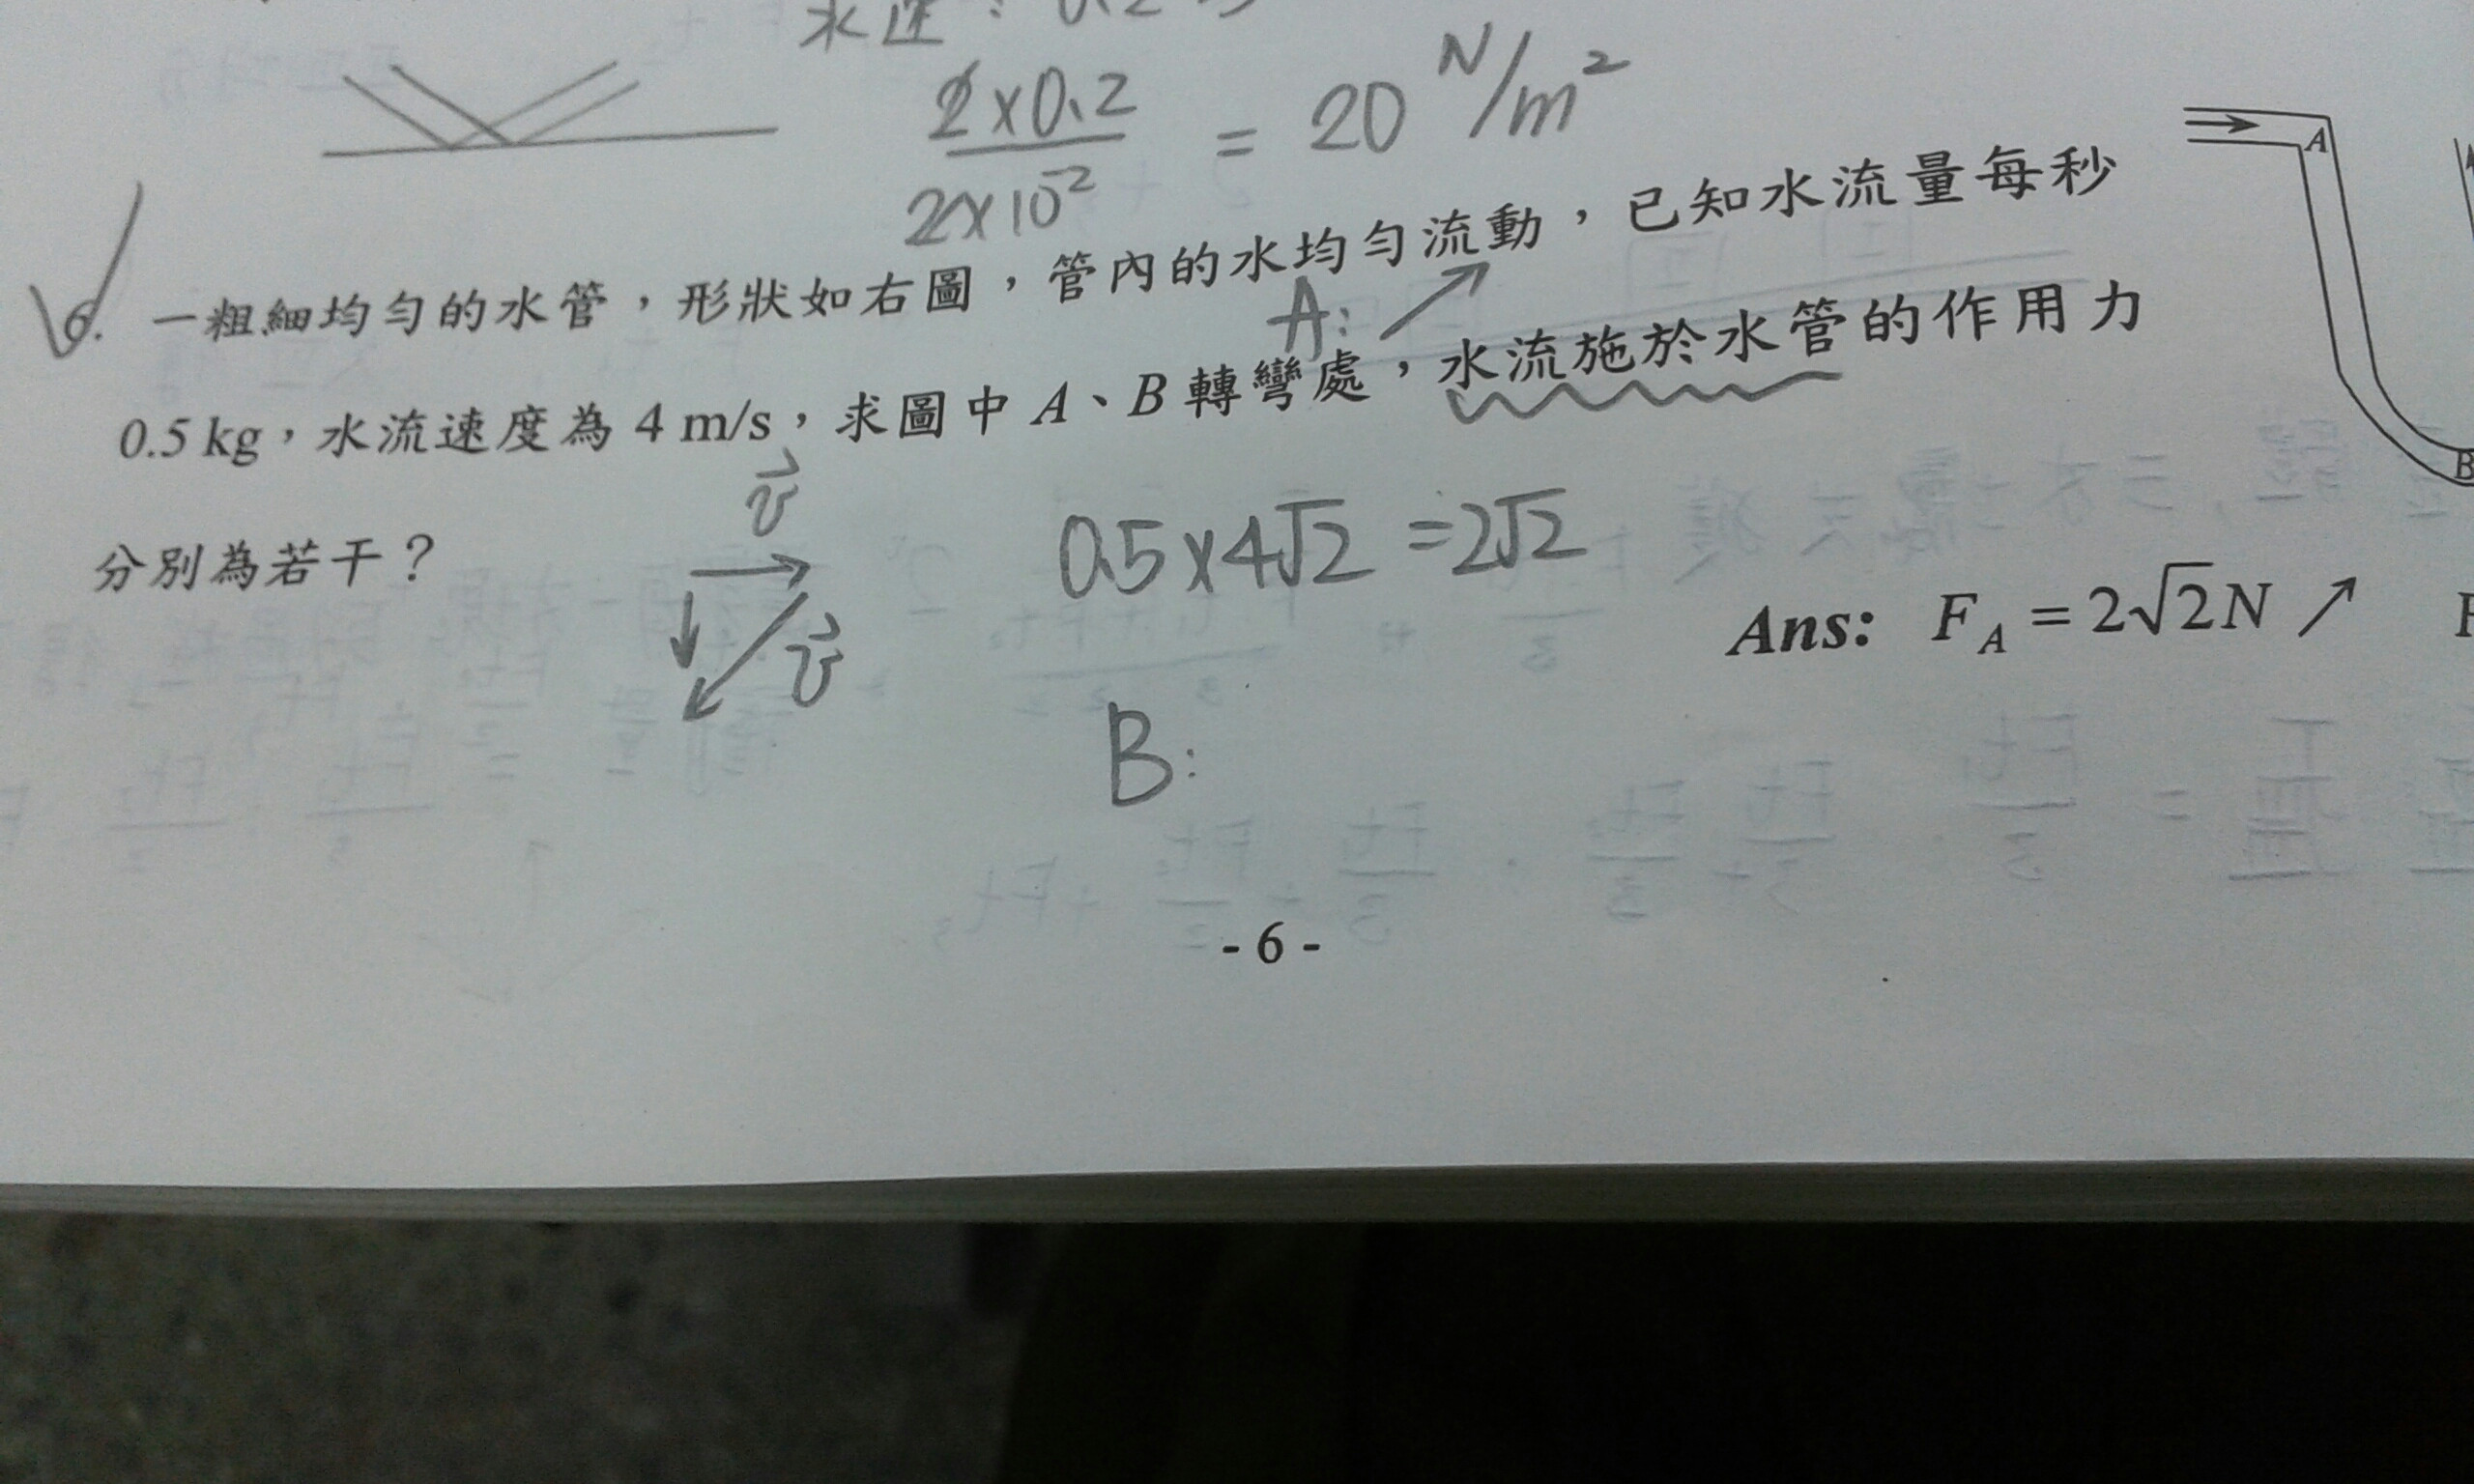 水速：0.2
2×0.2 / 2×10⁻² = 20 N/m²
A
6. 一粗細均勻的水管，形狀如右圖，管內的水均勻流動，已知水流量每秒
A:
0.5 kg，水流速度為 4 m/s，求圖中 A、B 轉彎處，水流施於水管的作用力
B
分別為若干？
v⃗
v⃗
0.5×4√2 = 2√2
Ans: F_A = 2√2 N ↗
B:
- 6 -